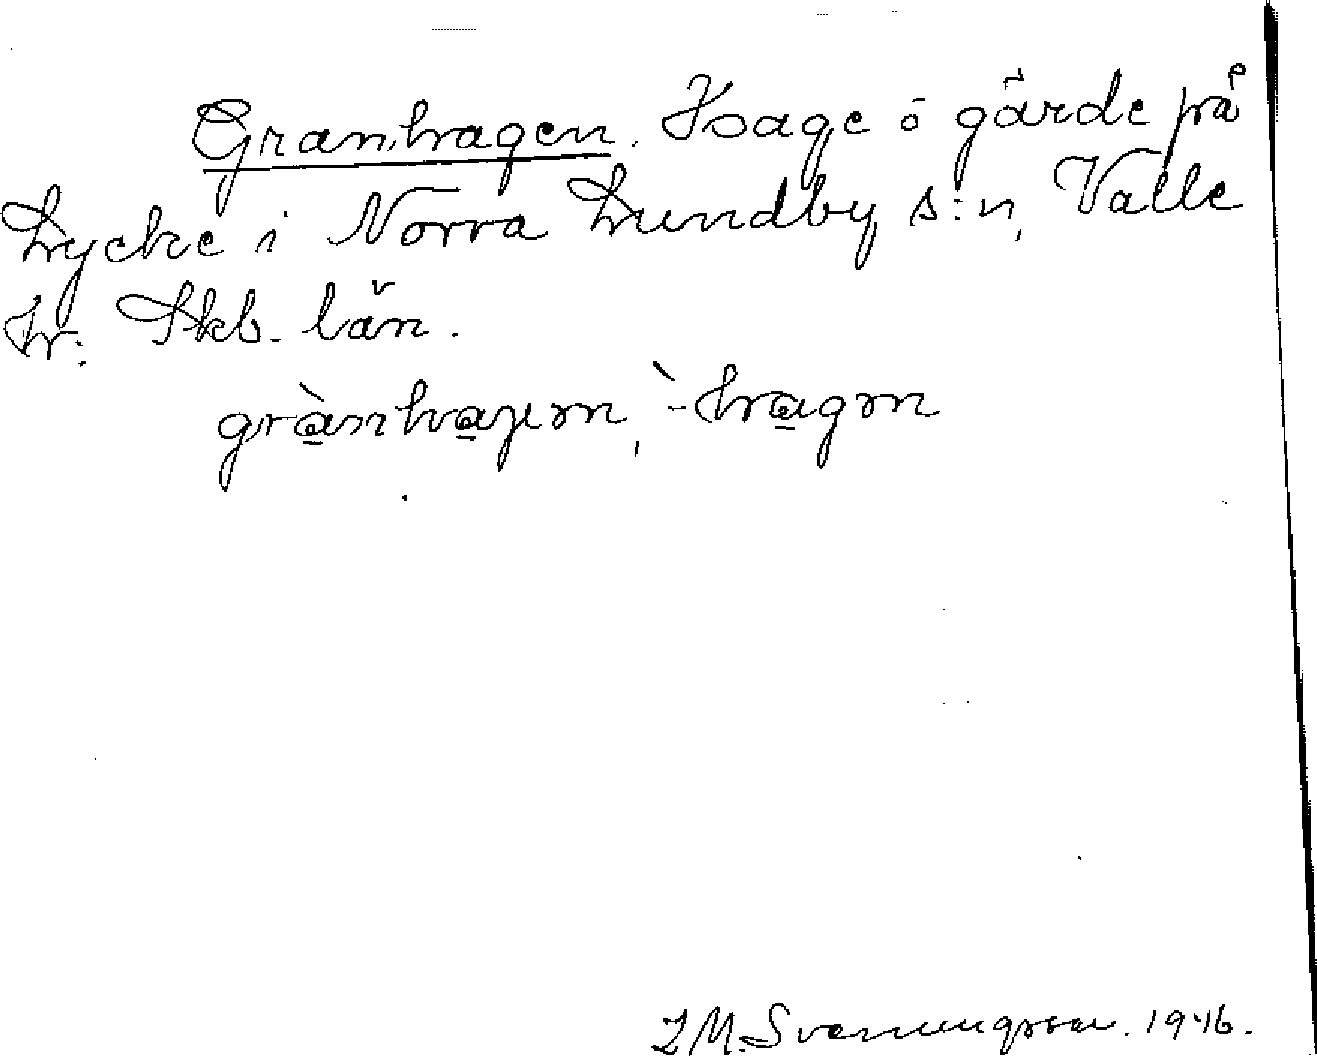 Granhagen. Hage o gärde på
Lycke i Norra Lundby s:n, Valle
hr. Skb. län.
grànhagen, `-hragrn
Svenungsson. 1946.